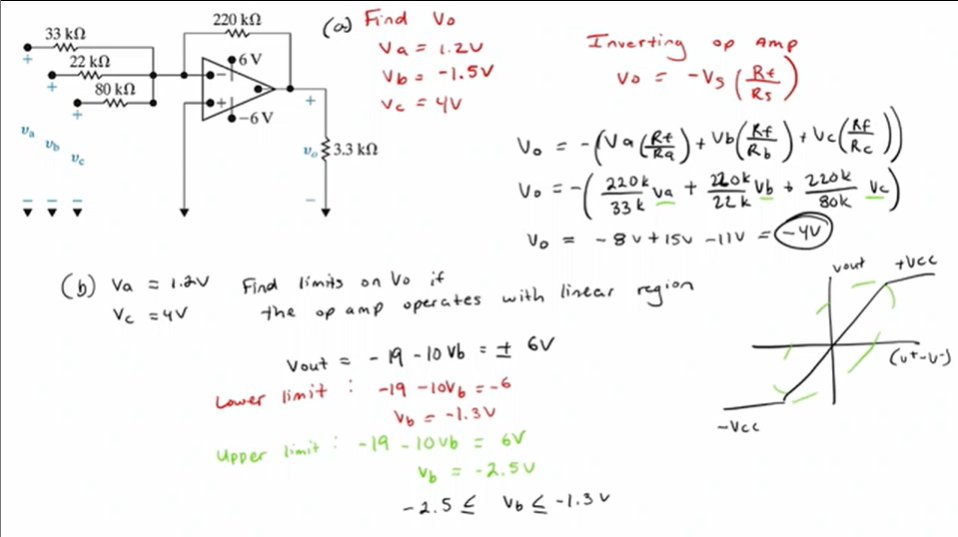 33 kΩ
22 kΩ
80 kΩ
220 kΩ
6 V
−
+
−6 V
+
+
+
+
va
vb
vc
vo
3.3 kΩ
−
−
−
−
(a) Find Vo
Va = 1.2V
Vb = -1.5V
Vc = 4V
Inverting op Amp
Vo = -Vs (Rf/Rs)
Vo = -(Va(Rf/Ra) + Vb(Rf/Rb) + Vc(Rf/Rc))
Vo = -(220k/33k Va + 220k/22k Vb + 220k/80k Vc)
Vo = -8V + 15V - 11V = -4V
(b) Va = 1.2V Find limits on Vo if
Vc = 4V the op amp operates with linear region
Vout = -19 - 10Vb = ± 6V
Lower limit : -19 - 10Vb = -6
Vb = -1.3V
Upper limit : -19 - 10Vb = 6V
Vb = -2.5V
-2.5 ≤ Vb ≤ -1.3V
Vout
+Vcc
(v+-v-)
-Vcc